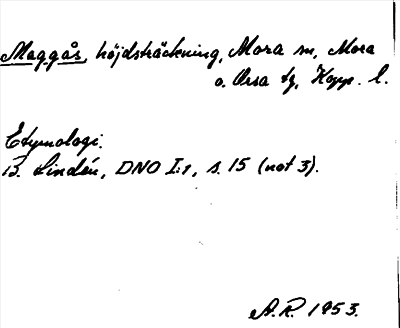 Maggås, höjdsträckning, Mora sn, Mora
o. Orsa tg, Kopp. l.
Etymologi.
B. Lindén, DNO I:1, s. 15 (not 3).
A.R. 1953.